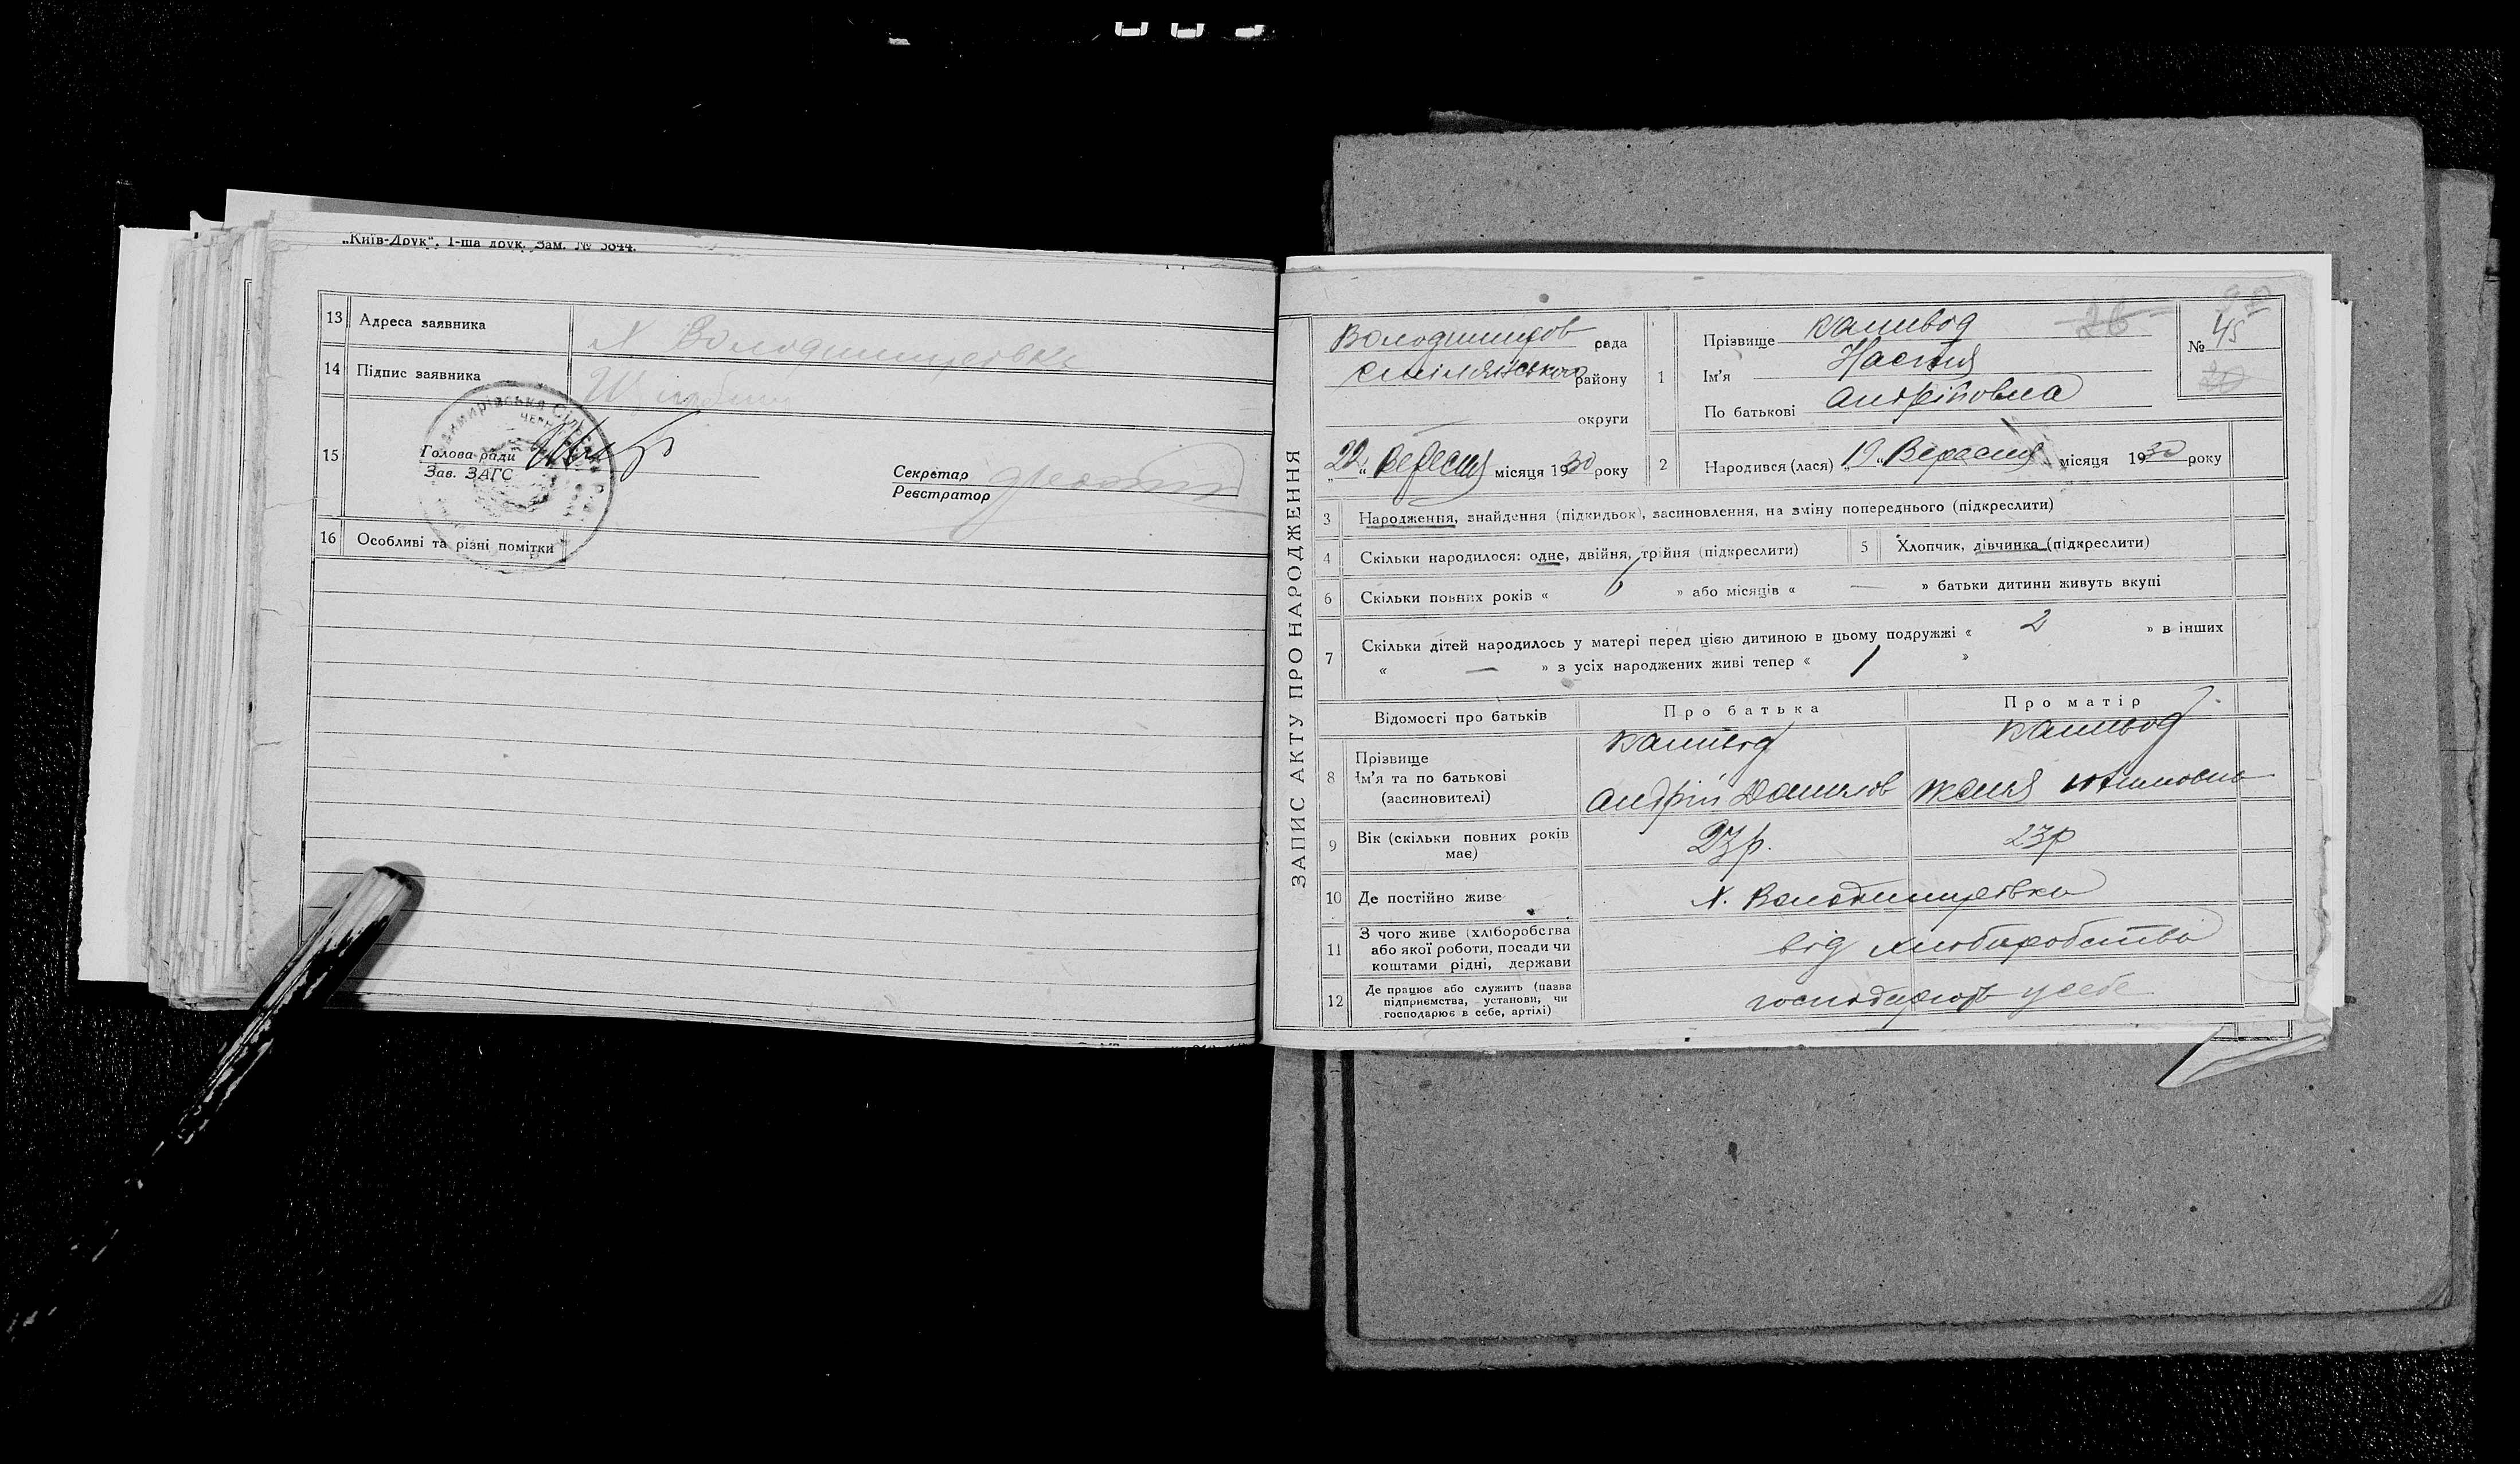 „Київ-Друк“, 1-ша друк. Зам. № 3844.
13 Адреса заявника х Володимирівка
14 Підпис заявника
15 Голова ради
Зав. ЗАГС
Секретар
Реєстратор
16 Особливі та різні помітки
ЗАПИС АКТУ ПРО НАРОДЖЕННЯ
Володимиров рада
Смілянського району
округи
„22“ Вересня місяця 1930 року
1 Прізвище Каливод
Ім'я Настя
По батькові Андріівна
26
№ 45
20
2 Народився (лася) „19“ Вересня місяця 1930 року
3 Народження, знайдення (підкидьок), засиновлення, на зміну попереднього (підкреслити)
4 Скільки народилося: одне, двійня, трійня (підкреслити)
5 Хлопчик, дівчинка (підкреслити)
6 Скільки повних років « 6 » або місяців « — » батьки дитини живуть вкупі
7 Скільки дітей народилось у матері перед цією дитиною в цьому подружжі « 2 » в інших
« — » з усіх народжених живі тепер « 1 »
Відомості про батьків Про батька Про матір
8 Прізвище
Ім'я та по батькові
(засиновителі)
Каливод
Андрій Данилов
Каливод
9 Вік (скільки повних років має) 23р. 23р
10 Де постійно живе х. Володимирівка
11 З чого живе (хліборобства
або якої роботи, посади чи
коштами рідні, держави
від хліборобства
12 Де працює або служить (назва
підприємства, установи, чи
господарює в себе, артілі)
господарюють у себе